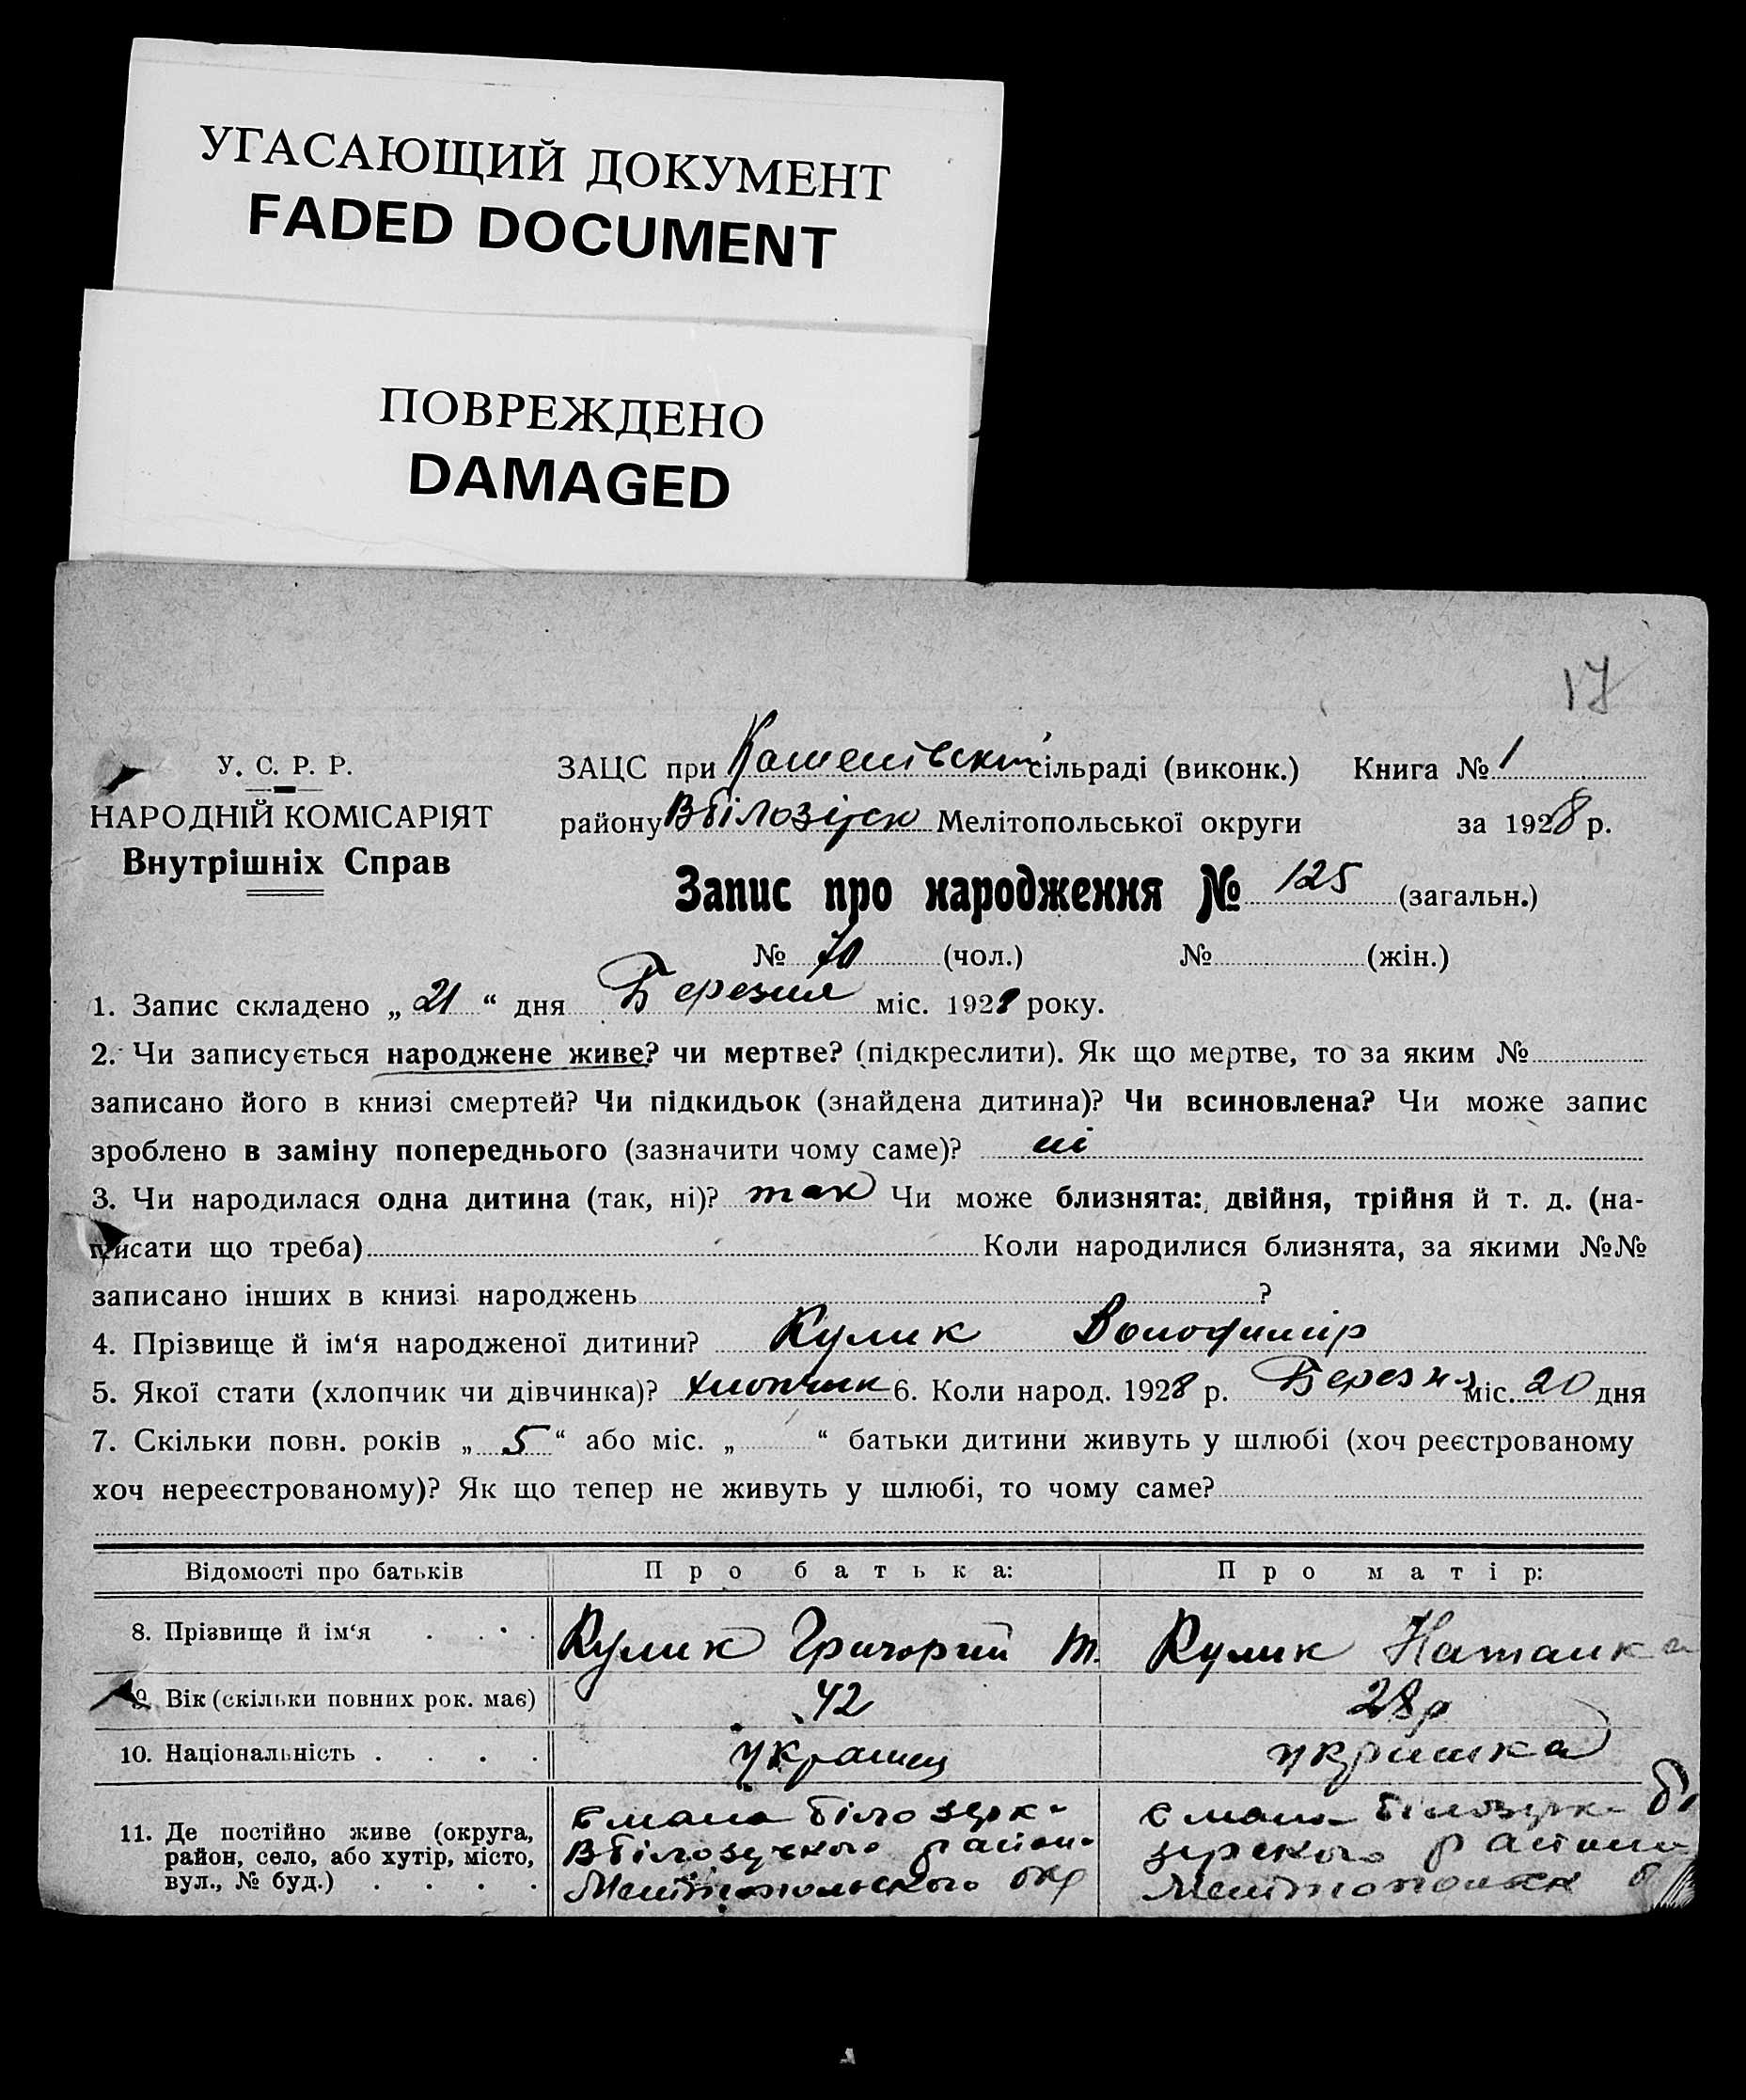 УГАСАЮЩИЙ ДОКУМЕНТ
FADED DOCUMENT
ПОВРЕЖДЕНО
DAMAGED
17
У. С. Р. Р.
НАРОДНІЙ КОМІСАРІЯТ
Внутрішніх Справ
ЗАЦС при сільраді (виконк.) Книга № 1
району Вбілозірск Мелітопольської округи за 1928 р.
Запис про народження № 125 (загальн.)
№ 70 (чол.) № (жін.)
1. Запис складено „ 21 “ дня Березня міс. 1928 року.
2. Чи записується народжене живе? чи мертве? (підкреслити). Як що мертве, то за яким №
записано його в книзі смертей? Чи підкидьок (знайдена дитина)? Чи всиновлена? Чи може запис
зроблено в заміну попереднього (зазначити чому саме)? ні
3. Чи народилася одна дитина (так, ні)? так Чи може близнята: двійня, трійня й т. д. (на-
писати що треба) Коли народилися близнята, за якими №№
записано інших в книзі народжень ?
4. Прізвище й ім‘я народженої дитини? Кулик Володимір
5. Якої стати (хлопчик чи дівчинка)? хлопчик 6. Коли народ. 1928 р. Березня міс. 20 дня
7. Скільки повн. років „ 5 “ або міс. „ “ батьки дитини живуть у шлюбі (хоч реєстрованому
хоч нереєстрованому)? Як що тепер не живуть у шлюбі, то чому саме?
Відомості про батьків Про батька: Про матір:
8. Прізвище й ім‘я . . . . Кулик Григорий Т. Кулик Наталка
9. Вік (скільки повних рок. має) 42 28 р
10. Національність . . . . українец українка
11. Де постійно живе (округа,
район, село, або хутір, місто,
вул., № буд.) . . . .
білозерк
Вбілозерского район
Мелітопольского окр
білозерк
зерского района